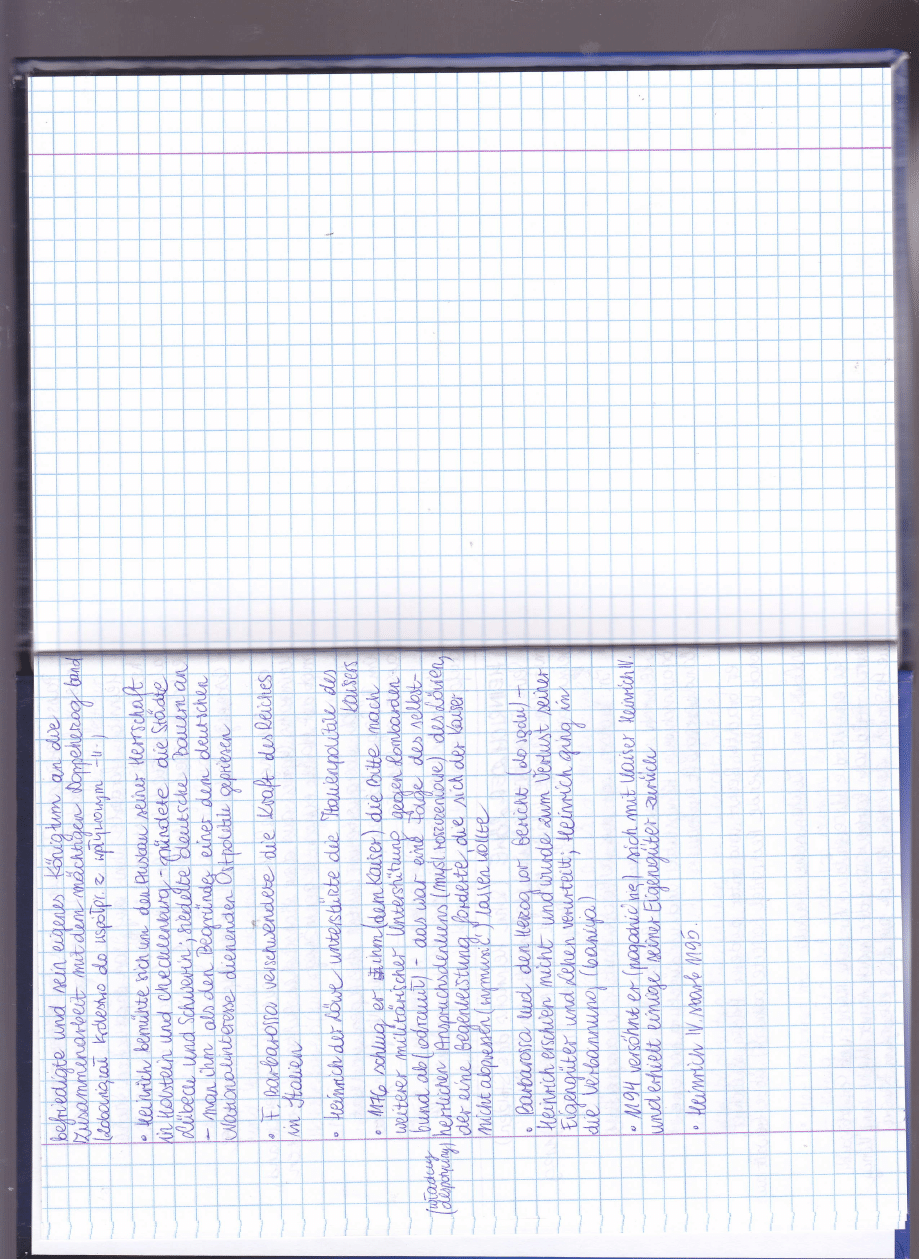 befriedigte und sein eigenes Königtum an die
Zusammenarbeit mit dem mächtigen Doppelherzog band
(zobowiązał Królestwo do współpr. z wpływowym -||-)
• Heinrich bemühte sich um den Ausbau seiner Herrschaft
in Holstein und Mecklenburg - gründete die Städte
Lübeck und Schwerin; siedelte deutsche Bauern an
- man ihn als den Begründer einer den deutschen
Nationalinteresse dienenden Ostpolitik gepriesen
• F. Barbarossa verschwendete die Kraft des Reiches
in Italien
• Heinrich der Löwe unterstützte die Italienpolitik des
Kaisers
• 1176 schlug er ihm (dem Kaiser) die Bitte nach
weiterer militärischer Unterstützung gegen Lombarden
bund ab (odmówił) - das war eine Folge des selbst-
(władczy
(despotyczny) herrlichen Anspruchsdenkens (myśl roszczeniowe) des Löwen,
der eine Gegenleistung forderte, die sich der Kaiser
nicht abpressen (wymusić) lassen wollte
• Barbarossa lud den Herzog vor Gericht (do sądu) -
Heinrich erschien nicht und wurde zum Verlust seiner
Eigengüter und Lehen verurteilt; Heinrich ging in
die Verbannung (banicja)
• 1194 versöhnt er (pogodził się) sich mit Kaiser Heinrich IV.
und erhielt einige seiner Eigengüter zurück
• Heinrich IV starb 1195.